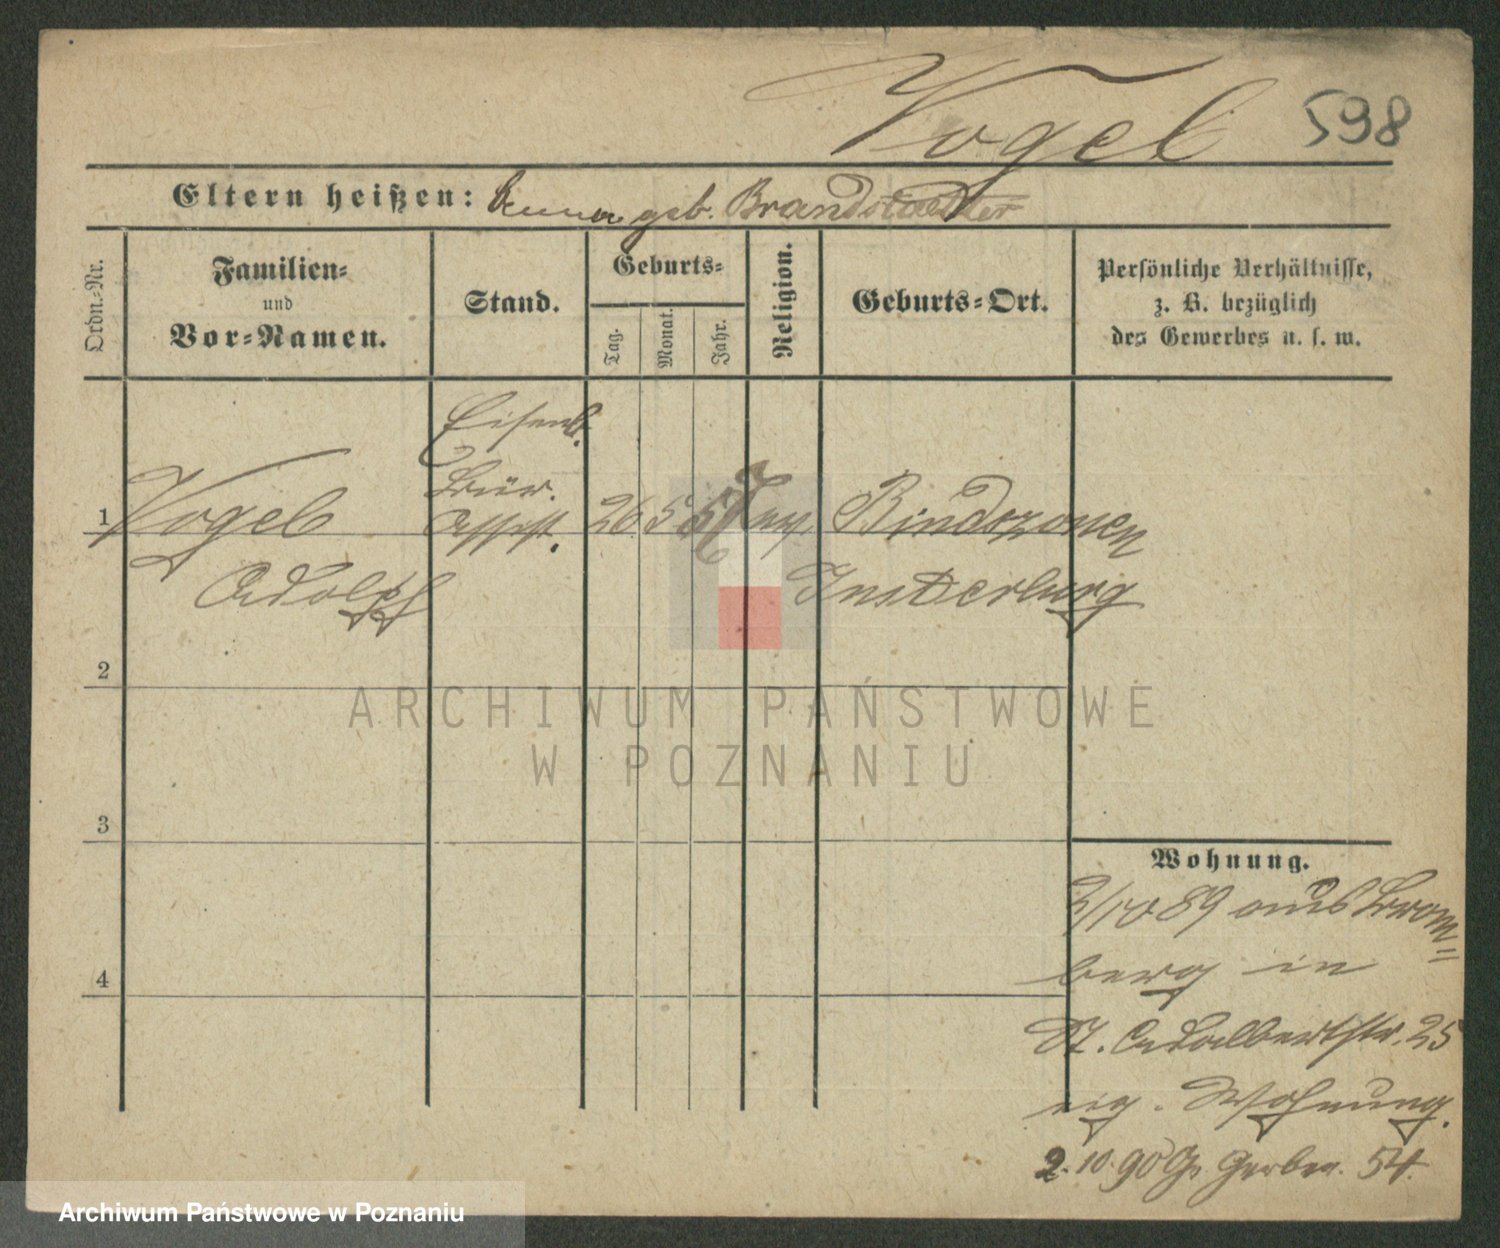 Vogel 598
Eltern heißen: Anna geb. Brandstaedter
Ordn.-Nr.
Familien-
und
Vor-Namen.
Stand.
Geburts-
Tag.
Monat.
Jahr.
Religion.
Geburts-Ort.
Persönliche Verhältnisse,
z. B. bezüglich
des Gewerbes u. s. w.
1
Vogel
Adolph
Eisenb.
Bür.
Assist.
26 5
Bindszonen
Insterburg
2
3
4
Wohnung.
3/10 89 aus Brom=
berg in
St. Adalbertstr. 25
eig. Wohnung.
2. 10. 90 Gr. Gerber. 54.
ARCHIWUM PAŃSTWOWE
W POZNANIU
Archiwum Państwowe w Poznaniu